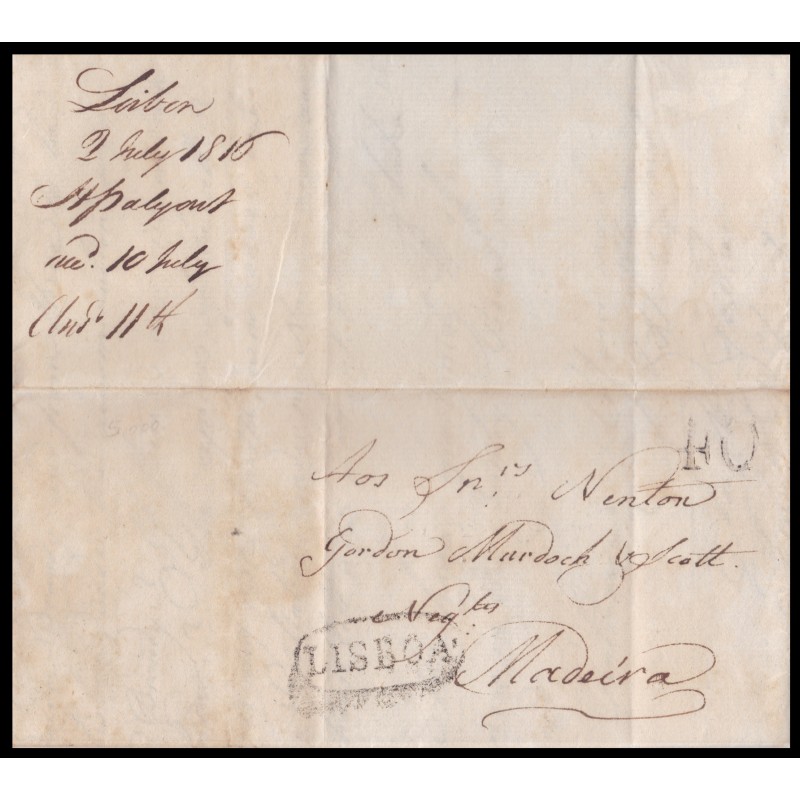 Lisbon
2 July 1816
recd. 10 July
Ansd. 11th
FO
Aos Snr.es Nenton
Gordon Murdoch & Scott.
Neg.tes
LISBOA
Madeira